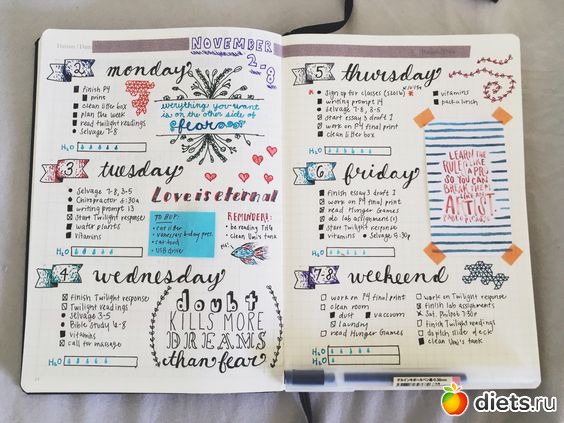 NOVEMBER
2-8
2
monday
finish P4
print
clean litter box
plan the week
read Twilight readings
Selvage 7-8
H2O
everything you want
is on the other side of
fear
3
tuesday
Selvage 7-8, 3-5
Chiropractor 6:30a
writing prompt 13
start Twilight response
water plants
vitamins
H2O
Love is eternal
TO BUY:
cat litter
cat food
USB drive
REMINDERS:
be reading
clean Umi's tank
4
wednesday
finish Twilight response
Twilight readings
Selvage 3-5
Bible Study 6-8
vitamins
call for massage
H2O
doubt
KILLS MORE
DREAMS
than fear
5
thursday
Sign up for classes
writing prompt 14
Selvage 7-8, 3-5
start essay 3 draft 1
work on P4 final print
clean litter box
vitamins
pack lunch
H2O
6
friday
finish essay 3 draft 1
work on P4 final print
read Hunger Games
do lab assignment(s)
start Twilight response
vitamins
Selvage
H2O
LEARN THE
RULES LIKE
A PRO
SO YOU CAN
BREAK THEM
LIKE AN
ARTIST
PABLO PICASSO
7-8
weekend
work on P4 final print
clean room
dust
vaccuum
laundry
read Hunger Games
work on Twilight response
finish lab assignments
finish Twilight readings
clean Umi's tank
H2O
H2O
diets.ru